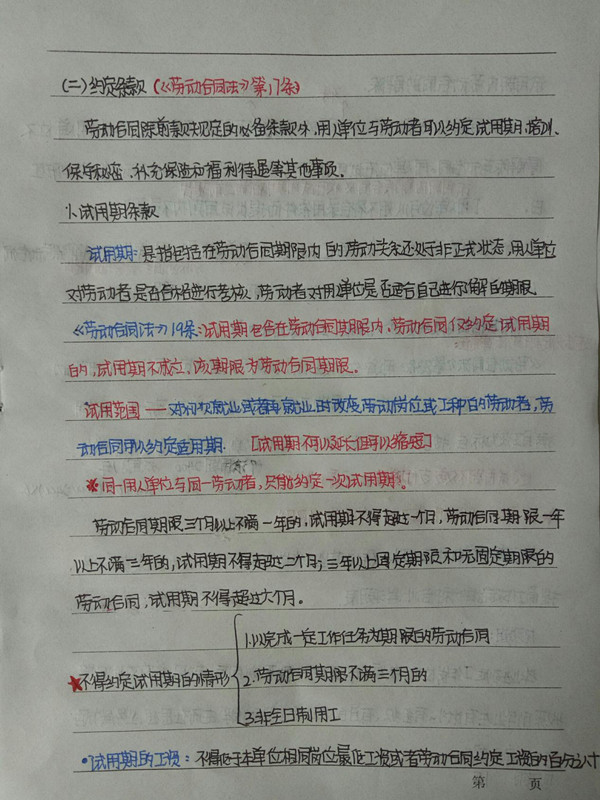 (二)约定条款(《劳动合同法》第17条)
劳动合同除前款规定的必备条款外,用人单位与劳动者可以约定试用期、培训、
保守秘密、补充保险和福利待遇等其他事项。
1、试用期条款
试用期:是指包括在劳动合同期限内的劳动关系还处于非正式状态,用人单位
对劳动者是否合格进行考核,劳动者对用人单位是否适合自己进行了解的期限。
《劳动合同法》19条:试用期包含在劳动合同期限内,劳动合同仅约定试用期
的,试用期不成立,该期限为劳动合同期限。
试用范围——对初次就业或者再就业时改变劳动岗位或工种的劳动者,劳
动合同可以约定适用期.[试用期不可以延长但可以缩短]
*同一用人单位与同一劳动者,只能约定一次试用期。
劳动合同期限三个月以上不满一年的,试用期不得超过一个月,劳动合同期限一年
以上不满三年的,试用期不得超过二个月;三年以上固定期限和无固定期限的
劳动合同,试用期不得超过六个月。
1.以完成一定工作任务为期限的劳动合同
★不得约定试用期的情形 2.劳动合同期限不满三个月的
3.非全日制用工
•试用期的工资:不得低于本单位相同岗位最低工资或者劳动合同约定工资的百分之八十
第 页